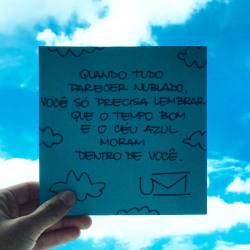 QUANDO TUDO
PARECER NUBLADO,
VOCÊ SÓ PRECISA LEMBRAR
QUE O TEMPO BOM
E O CÉU AZUL
MORAM
DENTRO DE VOCÊ.